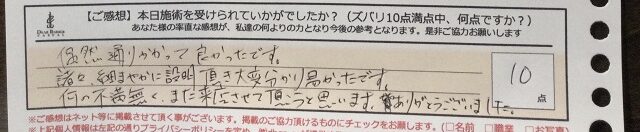 【ご感想】本日施術を受けられていかがでしたか?(ズバリ10点満点中、何点ですか?)
あなた様の率直な感想が、私達の何よりの力となり今後の参考となります。是非ご協力お願いします
偶然通りかかって良かったです。
諸々細まやかに説明頂き大変分かり易かったです。
何の不満無く、また来店させて頂こうと思います。ありがとうございました。
10
点
※ご感想はネット等に掲載させて頂く事がございます。掲載のご協力頂けるものにチェックをお願いします
※上記個人情報は左記の通りプライバシーポリシーを定め、 □名前 □職業 □お写真